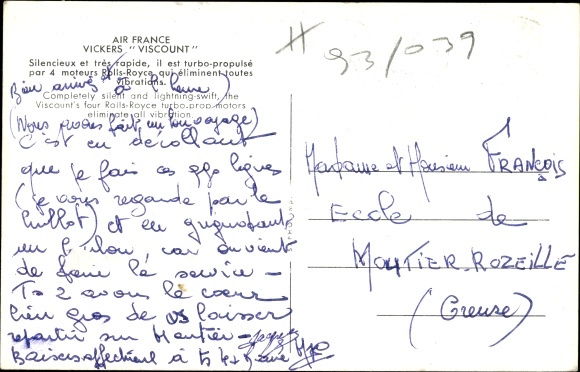 AIR FRANCE
VICKERS "VISCOUNT"
Silencieux et très rapide, il est turbo-propulsé
par 4 moteurs Rolls-Royce qui éliminent toutes
vibrations.
Completely silent and lightning-swift, the
Viscount's four Rolls-Royce turbo-prop motors
eliminate all vibration.
93/039
Bien arrivés à l'heure)
(Nous avons fait un bon voyage)
C'est en décollant
que je fais ces qqs lignes
(je vous regarde par le
hublot) et en grignotant
un bonbon, car on vient
de faire le service -
Ts 2 avons le cœur
bien gros de vs laisser
repartir sur Moutier -
Baisers affectueux à ts les
Madame et Monsieur FRANÇOIS
Ecole de
MOUTIER-ROZEILLE
(Creuse)